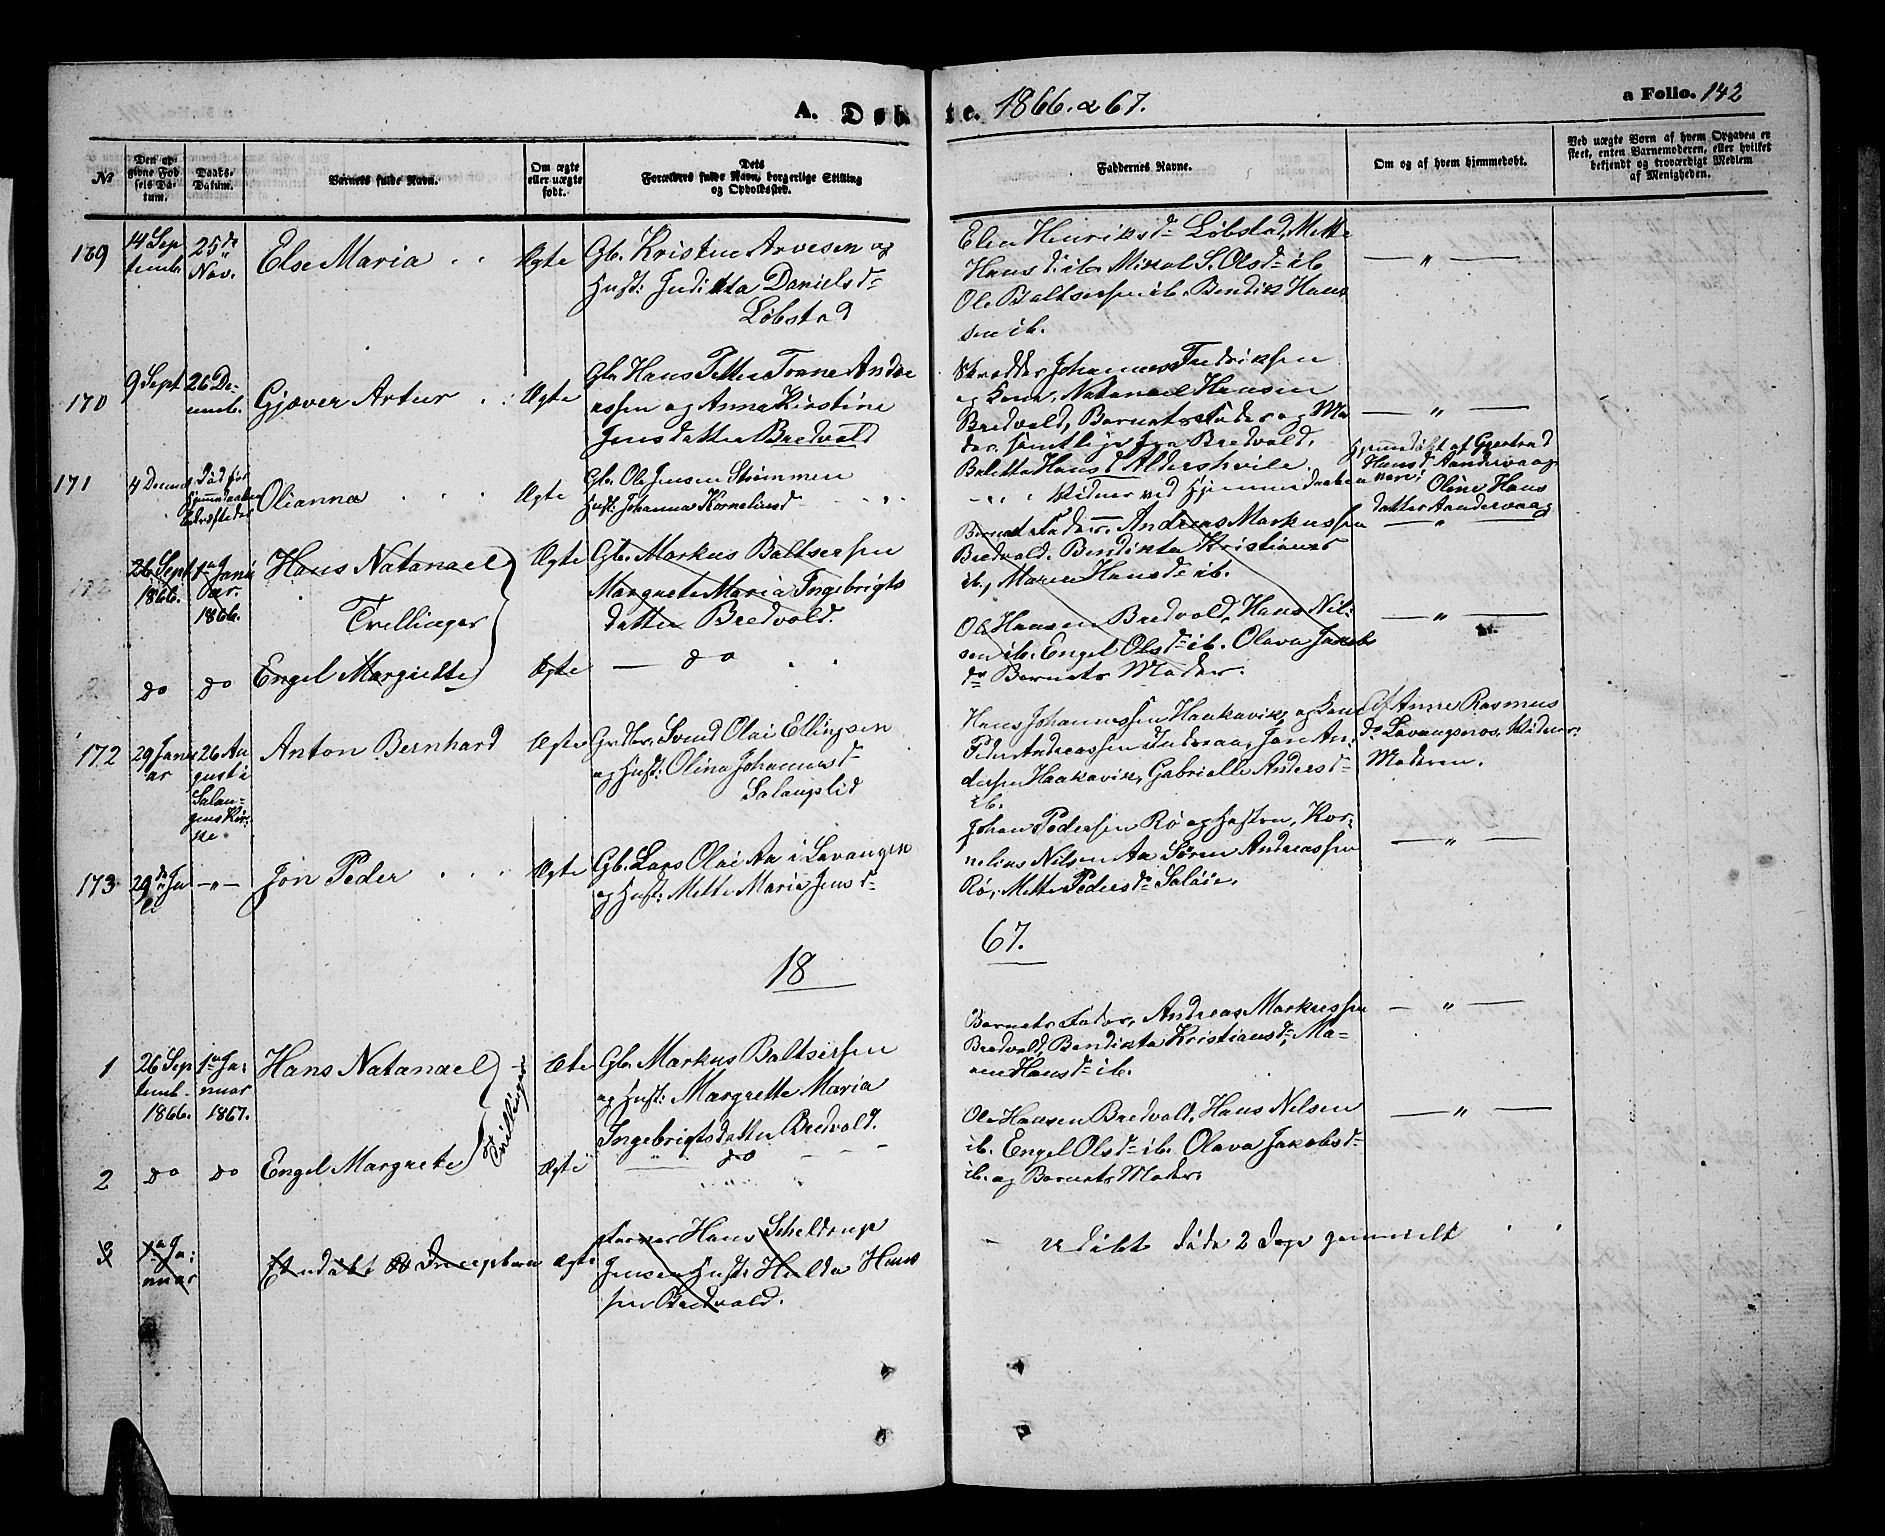 A. Døbte. 1866 & 67.
a Folio. 142
№
Den opgivne Fødsels Datum.
Daabs-Datum.
Barnets fulde Navn.
Om ægte eller uægte født.
Dets Forældres fulde Navn, borgerlige Stilling og Opholdssted.
Faddernes Navne.
Om og af hvem hjemmedøbt.
Ved uægte Børn af hvem Opgaven er skeet, enten Barnemoderen, eller hvilket bekjendt og troværdigt Medlem af Menigheden.
169
14 Sep
temb.
25de
Nov.
Else Maria
Ægte
Gb. Kristen Arvesen og
Hust: Juditta Daniels d
Løbstad
Elen Henriks d Løbstad, Mette
Hans d ib. Mikal S. Ols d ib
Ole Baltsersen ib. Bendik Hans
sen ib.
— " —
170
9 Sept
26 De-
cemb.
Gjæver Artur
Ægte
Gbr Hans Petter Trane Andre
assen og Anna Kirstine
Jensdatter Bredvold
Skrædder Johannes Fredriksen
og Kone, Natanael Hansen
Bredvold, Barnets Fader og Mo
der. samtlige fra Bredvold.
— " —
171
4 Decemb
Død før
Hjemmdaaben
bekræftedes
Olianna
Ægte
Gb. Ole Jensen Strømmen
Hust: Johanna Kornelius d
Baletta Hans d Aldershvile.
Vidner ved Hjemmedaaben vare;
Hjemmedøbt af Gjertrud
Hans d Aandervaag
Oline Hans
datter Aandervaag
172
26 Sept
1866.
1ste Janu
ar.
1866.
Hans Natanael
Tvillinger
Ægte
Gb. Markus Baltsersen
Margrete Maria Ingebrigts
datter Bredvold.
Barnets Fader, Andreas Markussen
Bredvold. Bendikta Kristians d
ib., Maren Hans d ib.
— " —
do
do
Engel Margrette
Ægte
— do
Ole Hansen Bredvold, Hans Nil-
sen ib. Engel Ols d ib. Olava Jakobs
d Barnets Moder.
— " —
172
29 Janu
ar
26 Au
gust i
Salan-
gens Kir-
ke.
Anton Bernhard
Ægte
Grdbr. Svend Olai Ellingsen
og Hust: Olina Johannes d
Salangslid
Hans Johannessen Haakavik, og Kone
Peder Andreassen Indreaa, Jon An-
dersen Haakavik, Gabrielle Anders d
ib.
Af Anne Rasmus
d Lavangsnæs, Vidner:
Moderen.
173
29de Ju
li
— " —
Jon Peder
Ægte
Gb. Lars Olai Aa i Lavangen
og Hust: Mette Maria Jens d
Johan Pedersen Rø og Hustru, Kor-
nelius Nilsen Aa Søren Andreassen
Rø, Mette Peders d Soløie.
— " —
18
67.
1
26 Sep
temb.
1866.
1ste Ja-
nuar
1867.
Hans Natanael
Tvillinger
Æte
Gb. Markus Baltsersen
og Hust: Margrette Maria
Ingebrigtsdatter Bredvold.
Barnets Fader, Andreas Markussen
Bredvold, Bendikta Kristians d, Ma-
ren Hans d ib.
— " —
2
do
do
Engel Margrete
Ægte
do
Ole Hansen Bredvold, Hans Nilsen
ib. Engel Ols d ib. Olava Jakobs d
ib. og Barnets Moder.
— " —
3
1ste Ja-
nuar
Et udøbt Drengebarn
Ægte
Hans Scheldrup
Jensen Hust: Hulda Hans
sen Bredvold.
Udøbt døde 2 Dage gammelt